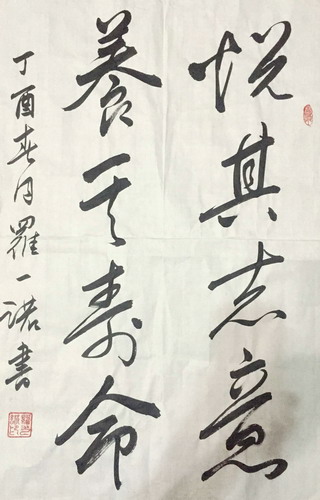 悦其志意
养其寿命
丁酉春月羅一诺書